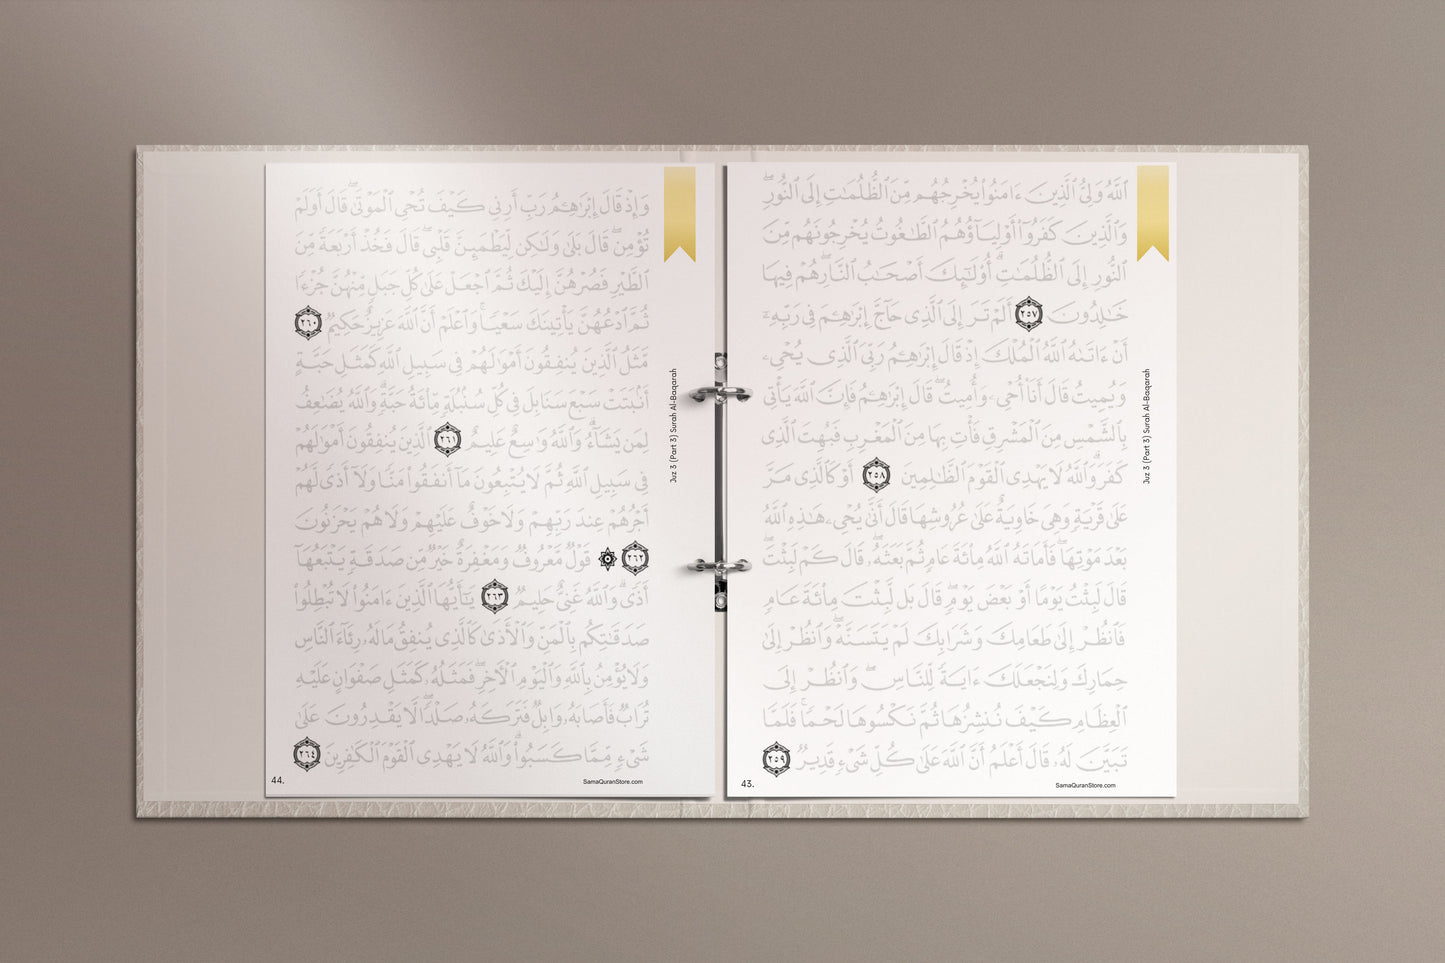 ٱللَّهُ وَلِىُّ ٱلَّذِينَ ءَامَنُوا۟ يُخْرِجُهُم مِّنَ ٱلظُّلُمَٰتِ إِلَى ٱلنُّورِ ۖ
وَٱلَّذِينَ كَفَرُوٓا۟ أَوْلِيَآؤُهُمُ ٱلطَّٰغُوتُ يُخْرِجُونَهُم مِّنَ
ٱلنُّورِ إِلَى ٱلظُّلُمَٰتِ ۗ أُو۟لَٰٓئِكَ أَصْحَٰبُ ٱلنَّارِ ۖ هُمْ فِيهَا
خَٰلِدُونَ ٢٥٧ أَلَمْ تَرَ إِلَى ٱلَّذِى حَآجَّ إِبْرَٰهِـۧمَ فِى رَبِّهِۦٓ
أَنْ ءَاتَىٰهُ ٱللَّهُ ٱلْمُلْكَ إِذْ قَالَ إِبْرَٰهِـۧمُ رَبِّىَ ٱلَّذِى يُحْىِۦ
وَيُمِيتُ قَالَ أَنَا۠ أُحْىِۦ وَأُمِيتُ ۖ قَالَ إِبْرَٰهِـۧمُ فَإِنَّ ٱللَّهَ يَأْتِى
بِٱلشَّمْسِ مِنَ ٱلْمَشْرِقِ فَأْتِ بِهَا مِنَ ٱلْمَغْرِبِ فَبُهِتَ ٱلَّذِى
كَفَرَ ۗ وَٱللَّهُ لَا يَهْدِى ٱلْقَوْمَ ٱلظَّٰلِمِينَ ٢٥٨ أَوْ كَٱلَّذِى مَرَّ
عَلَىٰ قَرْيَةٍ وَهِىَ خَاوِيَةٌ عَلَىٰ عُرُوشِهَا قَالَ أَنَّىٰ يُحْىِۦ هَٰذِهِ ٱللَّهُ
بَعْدَ مَوْتِهَا ۖ فَأَمَاتَهُ ٱللَّهُ مِا۟ئَةَ عَامٍ ثُمَّ بَعَثَهُۥ ۖ قَالَ كَمْ لَبِثْتَ ۖ
قَالَ لَبِثْتُ يَوْمًا أَوْ بَعْضَ يَوْمٍ ۖ قَالَ بَل لَّبِثْتَ مِا۟ئَةَ عَامٍ
فَٱنظُرْ إِلَىٰ طَعَامِكَ وَشَرَابِكَ لَمْ يَتَسَنَّهْ ۖ وَٱنظُرْ إِلَىٰ
حِمَارِكَ وَلِنَجْعَلَكَ ءَايَةً لِّلنَّاسِ ۖ وَٱنظُرْ إِلَى
ٱلْعِظَامِ كَيْفَ نُنشِزُهَا ثُمَّ نَكْسُوهَا لَحْمًا ۚ فَلَمَّا
تَبَيَّنَ لَهُۥ قَالَ أَعْلَمُ أَنَّ ٱللَّهَ عَلَىٰ كُلِّ شَىْءٍ قَدِيرٌ ٢٥٩
43.
SamaQuranStore.com
Juz 3 (Part 3) Surah Al-Baqarah
وَإِذْ قَالَ إِبْرَٰهِـۧمُ رَبِّ أَرِنِى كَيْفَ تُحْىِ ٱلْمَوْتَىٰ ۖ قَالَ أَوَلَمْ
تُؤْمِن ۖ قَالَ بَلَىٰ وَلَٰكِن لِّيَطْمَئِنَّ قَلْبِى ۖ قَالَ فَخُذْ أَرْبَعَةً مِّنَ
ٱلطَّيْرِ فَصُرْهُنَّ إِلَيْكَ ثُمَّ ٱجْعَلْ عَلَىٰ كُلِّ جَبَلٍ مِّنْهُنَّ جُزْءًا
ثُمَّ ٱدْعُهُنَّ يَأْتِينَكَ سَعْيًا ۚ وَٱعْلَمْ أَنَّ ٱللَّهَ عَزِيزٌ حَكِيمٌ ٢٦٠
مَّثَلُ ٱلَّذِينَ يُنفِقُونَ أَمْوَٰلَهُمْ فِى سَبِيلِ ٱللَّهِ كَمَثَلِ حَبَّةٍ
أَنۢبَتَتْ سَبْعَ سَنَابِلَ فِى كُلِّ سُنۢبُلَةٍ مِّا۟ئَةُ حَبَّةٍ ۗ وَٱللَّهُ يُضَٰعِفُ
لِمَن يَشَآءُ ۗ وَٱللَّهُ وَٰسِعٌ عَلِيمٌ ٢٦١ ٱلَّذِينَ يُنفِقُونَ أَمْوَٰلَهُمْ
فِى سَبِيلِ ٱللَّهِ ثُمَّ لَا يُتْبِعُونَ مَآ أَنفَقُوا۟ مَنًّا وَلَآ أَذًى ۙ لَّهُمْ
أَجْرُهُمْ عِندَ رَبِّهِمْ وَلَا خَوْفٌ عَلَيْهِمْ وَلَا هُمْ يَحْزَنُونَ
٢٦٢ ۞ قَوْلٌ مَّعْرُوفٌ وَمَغْفِرَةٌ خَيْرٌ مِّن صَدَقَةٍ يَتْبَعُهَآ
أَذًى ۗ وَٱللَّهُ غَنِىٌّ حَلِيمٌ ٢٦٣ يَٰٓأَيُّهَا ٱلَّذِينَ ءَامَنُوا۟ لَا تُبْطِلُوا۟
صَدَقَٰتِكُم بِٱلْمَنِّ وَٱلْأَذَىٰ كَٱلَّذِى يُنفِقُ مَالَهُۥ رِئَآءَ ٱلنَّاسِ
وَلَا يُؤْمِنُ بِٱللَّهِ وَٱلْيَوْمِ ٱلْءَاخِرِ ۖ فَمَثَلُهُۥ كَمَثَلِ صَفْوَانٍ عَلَيْهِ
تُرَابٌ فَأَصَابَهُۥ وَابِلٌ فَتَرَكَهُۥ صَلْدًا ۖ لَّا يَقْدِرُونَ عَلَىٰ
شَىْءٍ مِّمَّا كَسَبُوا۟ ۗ وَٱللَّهُ لَا يَهْدِى ٱلْقَوْمَ ٱلْكَٰفِرِينَ ٢٦٤
44.
SamaQuranStore.com
Juz 3 (Part 3) Surah Al-Baqarah